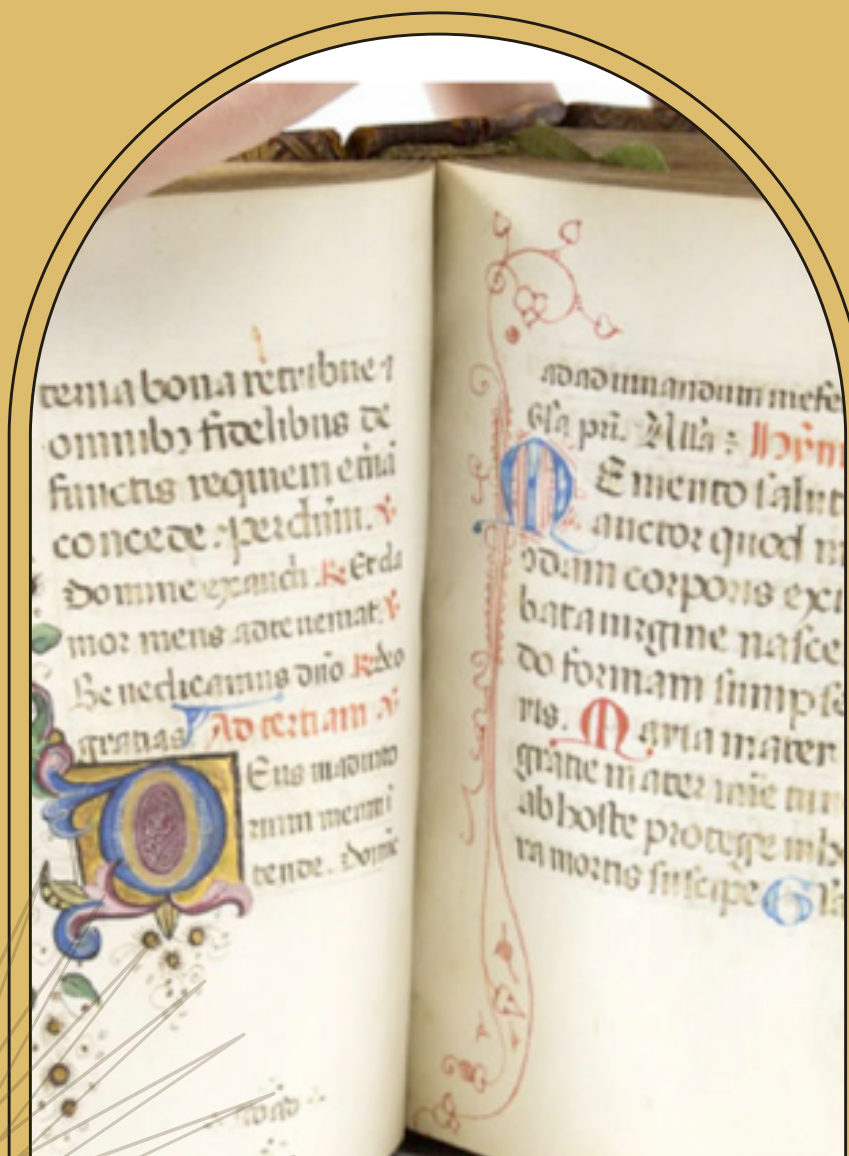 terna bona retribue ⁊
omnibꝫ fidelibus de
functis requiem et̄nā
concede. per dn̄m. ℣.
Domine exaudi. ℟. Et cla
mor meus ad te veniat. ℣.
Benedicamus dn̄o ℟. deo
gratias Ad tertiam ℣.
Deus in adiuto
rium meum i
tende. Domīe
ad adiuuandum me fe
Gl̄a pr̄i. All̄a:
Memento salut
auctor quod n
odam corporis
bata virgine nasce
do formam sumpse
ris. Maria mater
gratie mater mīe
ab hoste protege
ra mortis suscipe Gl̄a